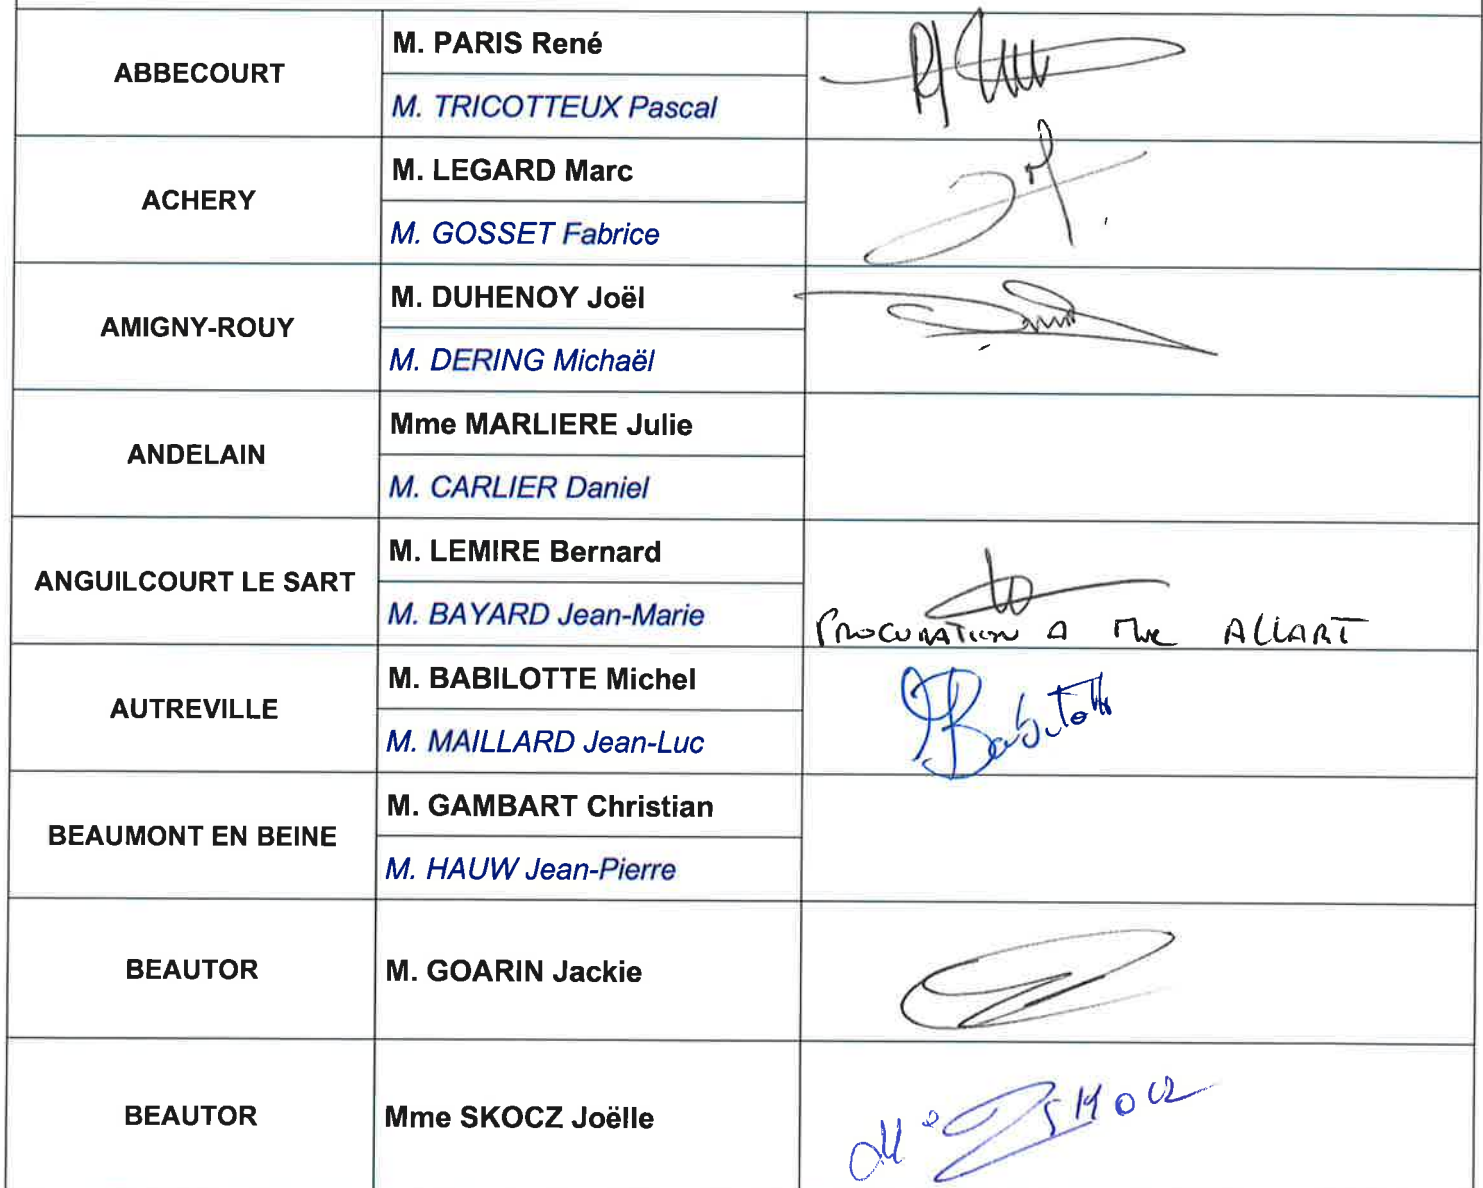 ABBECOURT
M. PARIS René
M. TRICOTTEUX Pascal
ACHERY
M. LEGARD Marc
M. GOSSET Fabrice
AMIGNY-ROUY
M. DUHENOY Joël
M. DERING Michaël
ANDELAIN
Mme MARLIERE Julie
M. CARLIER Daniel
ANGUILCOURT LE SART
M. LEMIRE Bernard
M. BAYARD Jean-Marie
PROCURATION A Mme ALLART
AUTREVILLE
M. BABILOTTE Michel
M. MAILLARD Jean-Luc
Babilotte
BEAUMONT EN BEINE
M. GAMBART Christian
M. HAUW Jean-Pierre
BEAUTOR
M. GOARIN Jackie
BEAUTOR
Mme SKOCZ Joëlle
SKOCZ